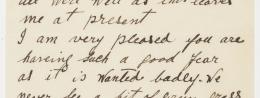 all were well as this leaves
me at present
I am very pleased you are
having such a good year
as it is wanted badly. We
never see a bit of green grass